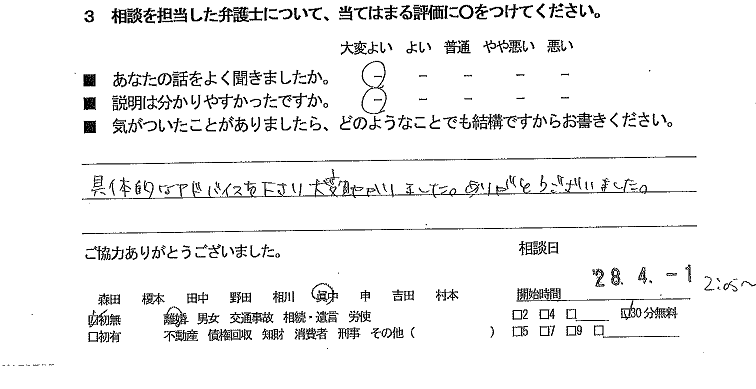 3 相談を担当した弁護士について、当てはまる評価に〇をつけてください。
大変よい よい 普通 やや悪い 悪い
■ あなたの話をよく聞きましたか。 － － － － －
■ 説明は分かりやすかったですか。 － － － － －
■ 気がついたことがありましたら、どのようなことでも結構ですからお書きください。
具体的なアドバイスを下さり大変 ました。ありがとうございました。
ご協力ありがとうございました。
相談日
'28.4.-1
2:05～
森田 榎本 田中 野田 相川 眞中 申 吉田 村本
開始時間
☑初無 離婚 男女 交通事故 相続・遺言 労使
□2 □4 □ ☑30分無料
□初有 不動産 債権回収 知財 消費者 刑事 その他（ ）
□5 □7 □9 □